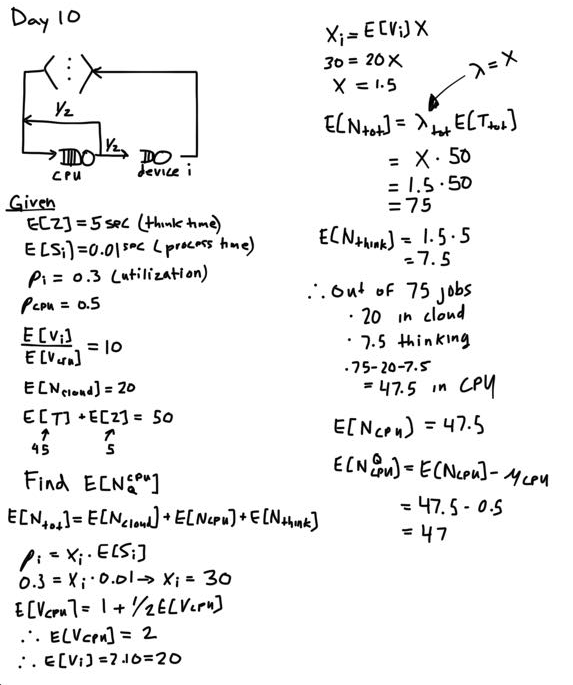 Day 10
1/2
1/2
CPU
device i
Given
E[Z] = 5 sec (think time)
E[Si] = 0.01 sec (process time)
ρi = 0.3 (utilization)
ρCPU = 0.5
E[Vi] / E[Vcpu] = 10
E[Ncloud] = 20
E[T] + E[Z] = 50
45 5
Find E[N_Q^CPU]
E[Ntot] = E[Ncloud] + E[NCPU] + E[Nthink]
ρi = Xi · E[Si]
0.3 = Xi · 0.01 → Xi = 30
E[VCPU] = 1 + 1/2 E[VCPU]
∴ E[VCPU] = 2
∴ E[Vi] = 2·10 = 20
Xi = E[Vi] X
30 = 20 X
X = 1.5
λ = X
E[Ntot] = λtot E[Ttot]
= X · 50
= 1.5 · 50
= 75
E[Nthink] = 1.5 · 5
= 7.5
∴ Out of 75 jobs
· 20 in cloud
· 7.5 thinking
· 75-20-7.5
= 47.5 in CPU
E[NCPU) = 47.5
E[N^Q_CPU] = E[NCPU] - μCPU
= 47.5 - 0.5
= 47